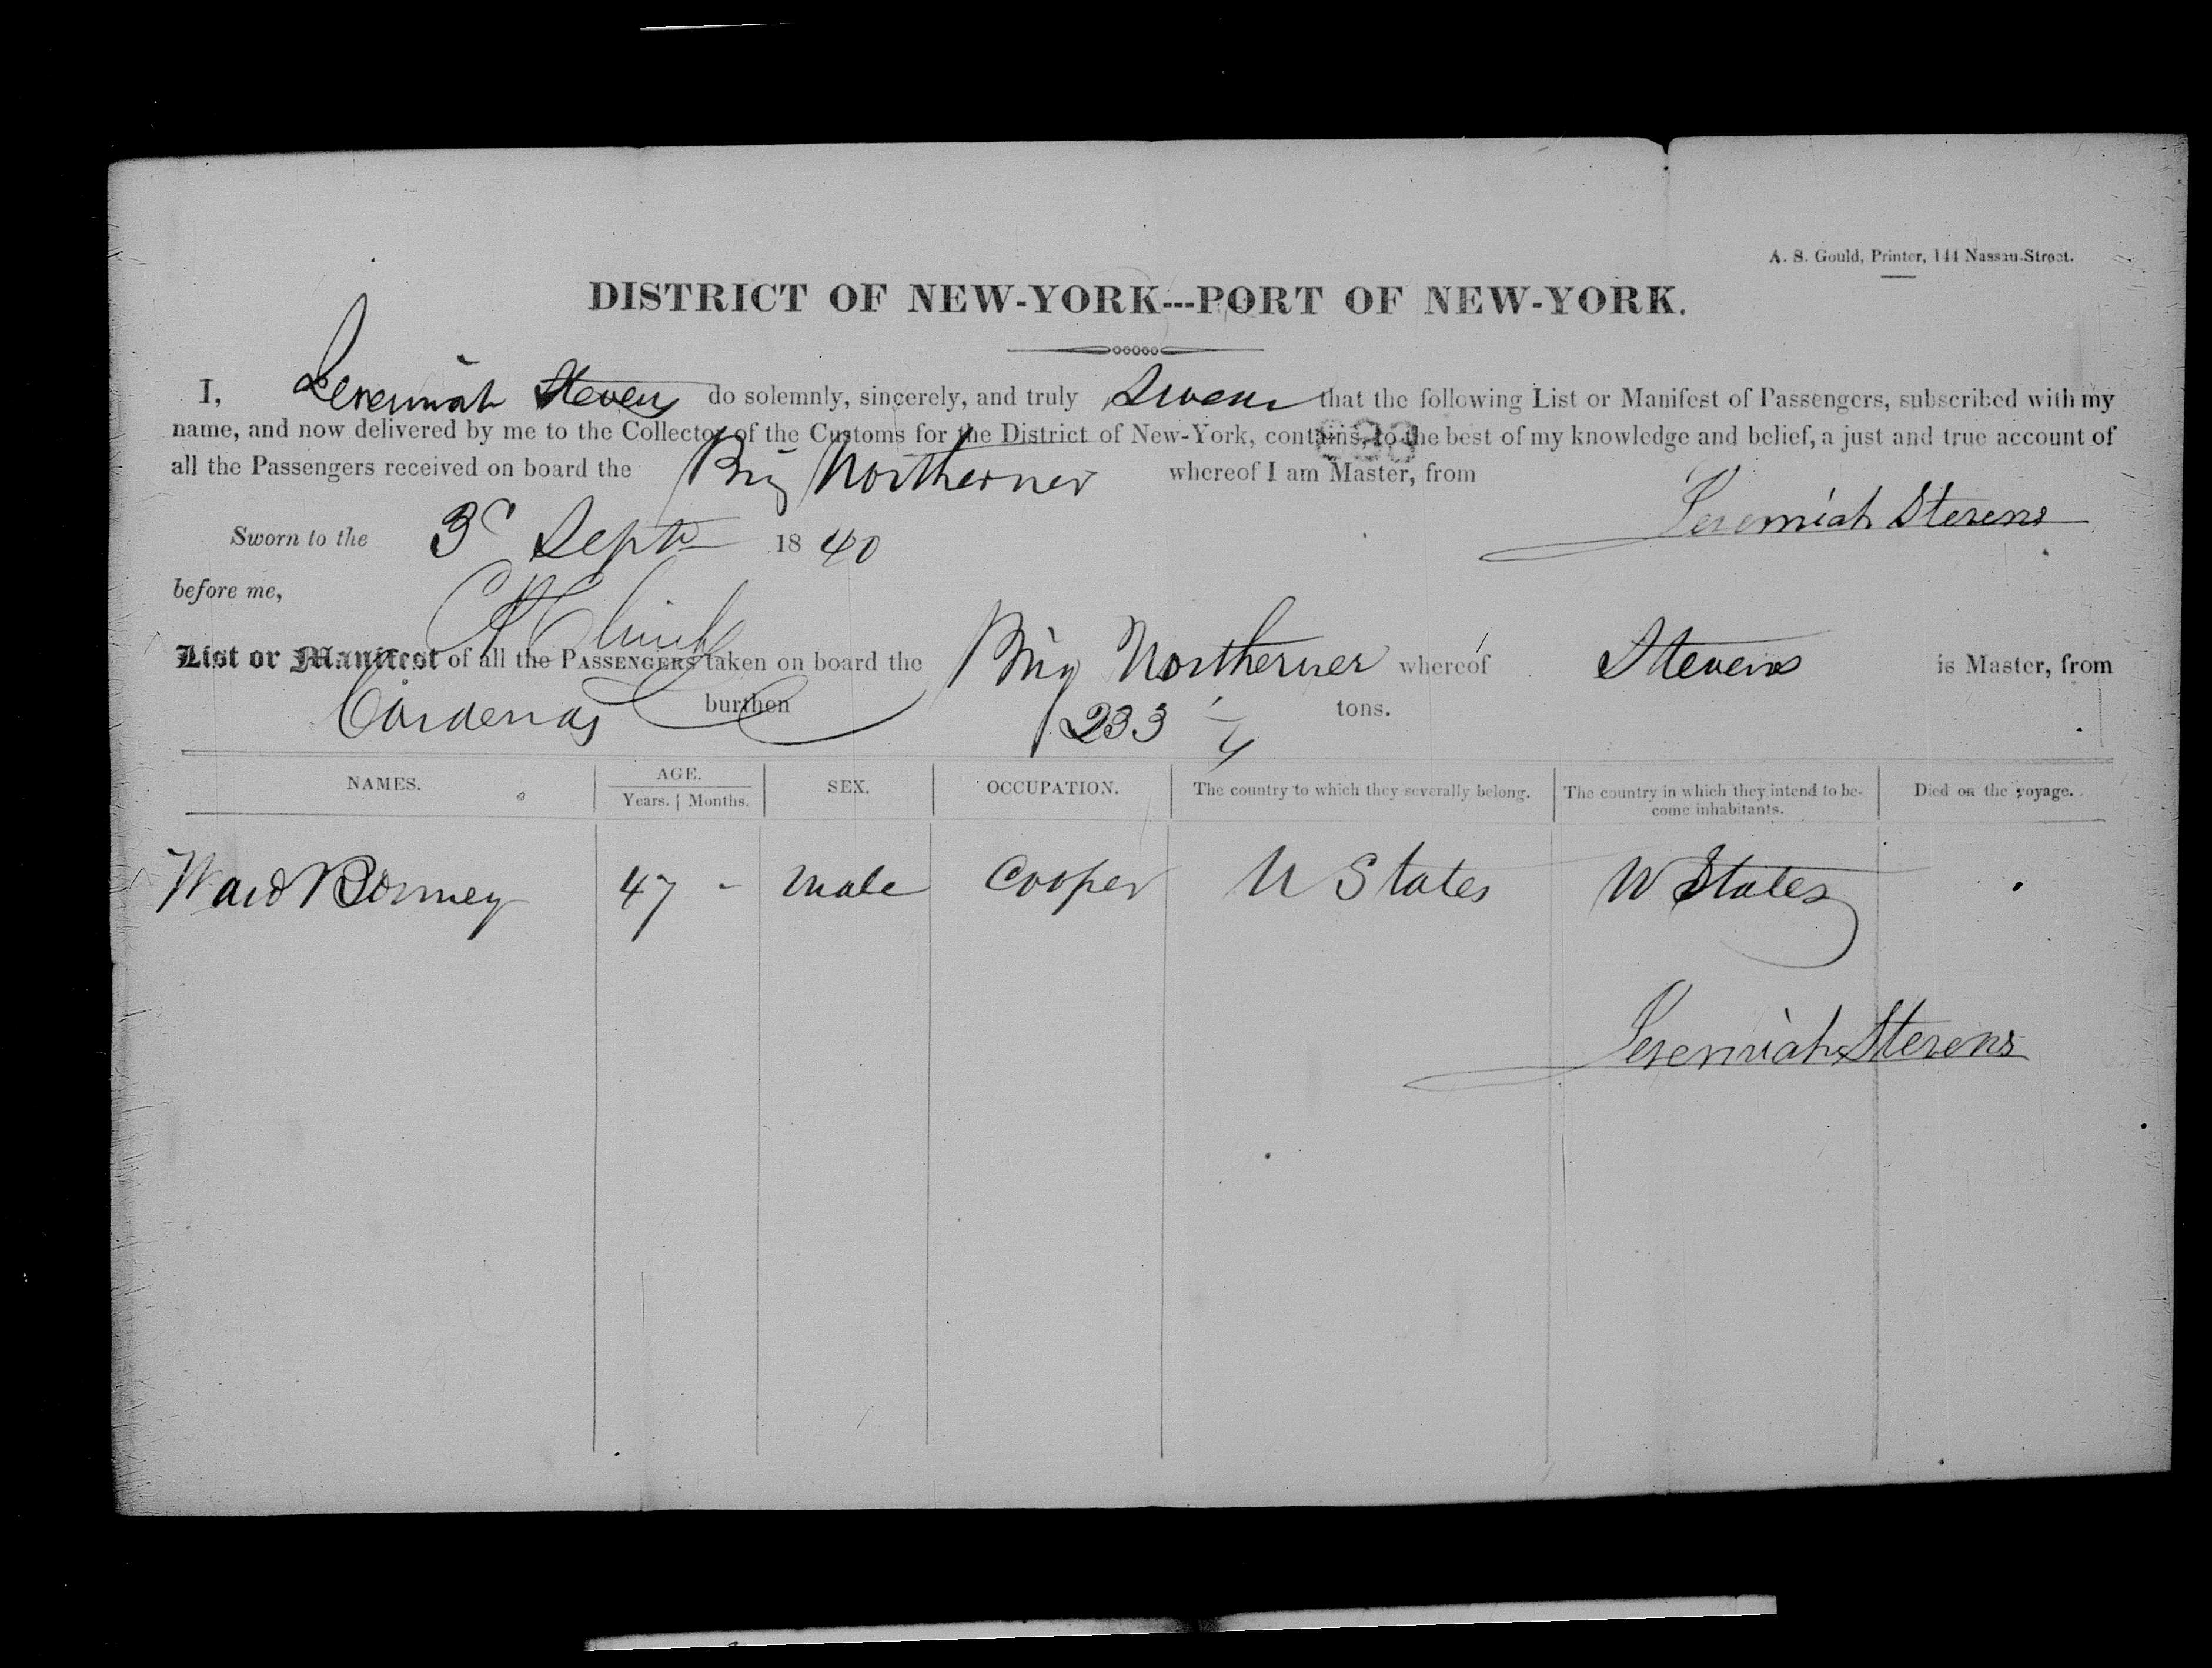 A. S. Gould, Printer, 144 Nassau-Street.
DISTRICT OF NEW-YORK---PORT OF NEW-YORK.
I, Jeremiah Stevens do solemnly, sincerely, and truly Swear that the following List or Manifest of Passengers, subscribed with my
name, and now delivered by me to the Collector of the Customs for the District of New-York, contains, to the best of my knowledge and belief, a just and true account of
all the Passengers received on board the Brig Northerner whereof I am Master, from
Jeremiah Stevens
Sworn to the 3d Sept 1840
before me,
List or Manifest of all the PASSENGERS taken on board the Brig Northerner whereof Stevens is Master, from
Cardenas burthen 233 tons.
NAMES. AGE. SEX. OCCUPATION. The country to which they severally belong. The country in which they intend to be- Died on the voyage.
Years. Months. come inhabitants.
Ward Bonney 47 - male Cooper U States U States
Jeremiah Stevens